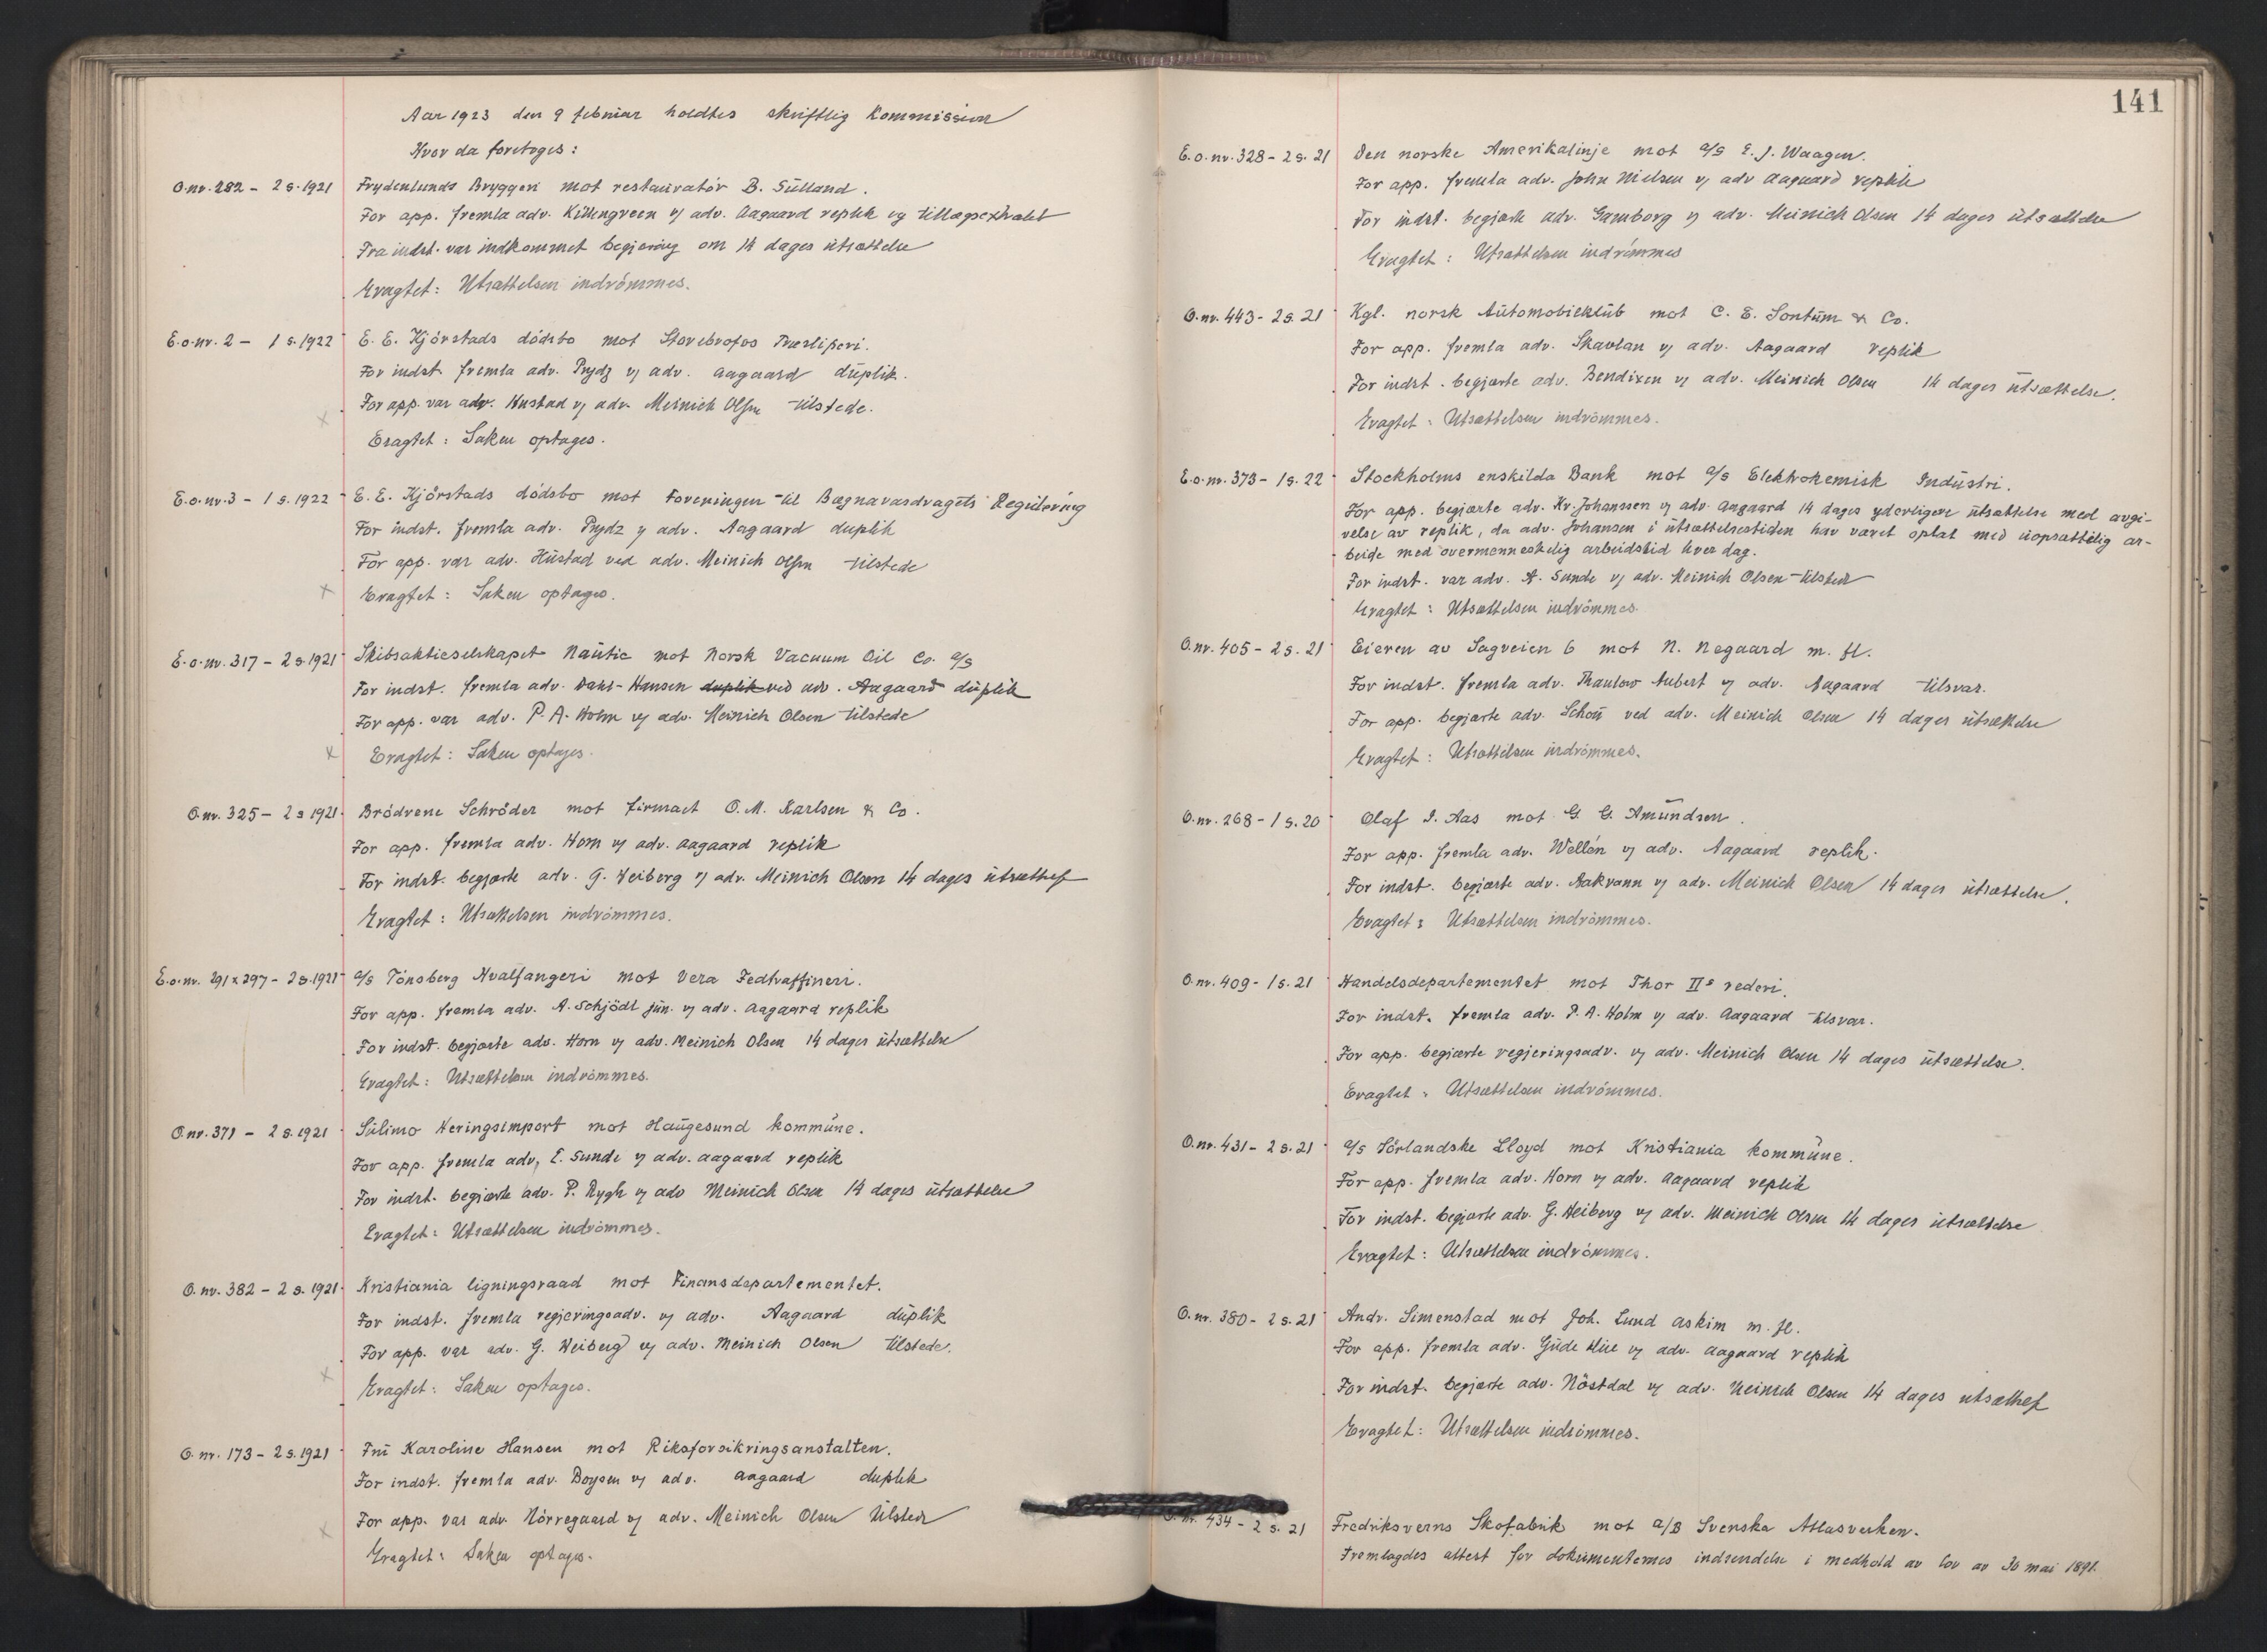 Aar 1923 den 9 februar holdtes skriftlig Kommission
Hvor da foretoges:
O.nr. 282 – 2 s. 1921 Frydenlunds Bryggeri mot restauratör B. Sülland.
For app. fremla adv. Killengreen v/ adv. Aagaard replik og tillægsextrakt
Fra indst. var indkommet begjæring om 14 dages utsættelse
Eragtet: Utsættelsen indrömmes.
E.o.nr. 2 – 1 s. 1922 E. E. Kjörstads dödsbo mot Storebrofos Træsliperi.
For indst. fremla adv. Prydz v/ adv. Aagaard duplik.
For app. var adv. Hustad v/ adv. Meinich Olsen tilstede.
x
Eragtet: Saken optages.
E.o.nr. 3 – 1 s. 1922 E. E. Kjörstads dödsbo mot Foreningen til Bægnavasdragets Regulering
For indst. fremla adv. Prydz v/ adv. Aagaard duplik
For app. var adv. Hustad ved adv. Meinich Olsen tilstede
x Eragtet: Saken optages.
E.o.nr. 317 – 2 s. 1921 Skibsaktieselskapet Nautic mot Norsk Vacuum Oil Co. a/s
For indst. fremla adv. Dahl-Hansen duplik ved adv. Aagaard duplik
For app. var adv. P. A. Holm v/ adv. Meinich Olsen tilstede
x Eragtet: Saken optages.
O.nr. 325 – 2 s 1921. Brödrene Schröder mot firmaet O. M. Karlsen & Co.
For app. fremla adv. Horn v/ adv. Aagaard replik
For indst. begjærte adv. G. Heiberg v/ adv. Meinich Olsen 14 dages utsættelse
Eragtet: Utsættelsen indrömmes.
E.o.nr. 291 x 297 – 2 s. 1921 a/s Tönsberg Hvalfangeri mot Vera Fedtraffineri.
For app. fremla adv. A. Schjödt jun. v/ adv. Aagaard replik
For indst. begjærte adv. Horn v/ adv. Meinich Olsen 14 dages utsættelse
Eragtet: Utsættelsen indrömmes.
O.nr. 371 – 2 s. 1921 Sülimo Heringsimport mot Haugesund kommune.
For app. fremla adv. E. Sunde v/ adv. Aagaard replik
For indst. begjærte adv. P. Rygh v/ adv Meinich Olsen 14 dages utsættelse
Eragtet: Utsættelsen indrömmes.
O.nr. 382 – 2 s. 1921. Kristiania ligningsraad mot Finansdepartementet.
For indst. fremla regjeringsadv. v/ adv. Aagaard duplik
For app. var adv. G. Heiberg v/ adv. Meinich Olsen tilstede.
x Eragtet: Saken optages.
O.nr. 173 – 2 s. 1921 Fru Karoline Hansen mot Riksforsikringsanstalten.
For indst. fremla adv. Boysen v/ adv. Aagaard duplik
For app. var adv. Nörregaard v/ adv. Meinich Olsen tilstede
x Eragtet: Saken optages.
141
E.o.nr. 328 – 2 s. 21 Den norske Amerikalinje mot a/s E. J. Waagen.
For app. fremla adv. John Nielsen v/ adv Aagaard replik
For indst. begjærte adv. Gamborg v/ adv. Meinich Olsen 14 dages utsættelse
Eragtet: Utsættelsen indrömmes
O.nr. 443 – 2 s. 21 Kgl. norsk Automobilklub mot C. E. Sontum & Co.
For app. fremla adv. Skavlan v/ adv. Aagaard replik
For indst. begjærte adv. Bendixen v/ adv. Meinich Olsen 14 dages utsættelse.
Eragtet: Utsættelsen indrömmes.
E.o.nr. 373 – 1 s. 22 Stockholms enskilda Bank mot a/s Elektrokemisk Industri.
For app. begjærte adv. Kr. Johansen v/ adv. Aagaard 14 dages yderligere utsættelse med avgi-
velse av replik, da adv. Johansen i utsættelsestiden har været optat med uopsættelig ar-
beide med overmenneskelig arbeidstid hver dag.
For indst. var adv. A. Sunde v/ adv. Meinich Olsen tilstede
Eragtet: Utsættelsen indrömmes.
O.nr. 405 – 2 s. 21 Eieren av Sagveien 6 mot N. Negaard m. fl.
For indst. fremla adv. Thaulow Aubert v/ adv. Aagaard tilsvar.
For app. begjærte adv. Schou ved adv. Meinich Olsen 14 dages utsættelse
Eragtet: Utsættelsen indrömmes.
O.nr. 268 – 1 s. 20 Olaf I. Aas mot G. G. Amundsen.
For app. fremla adv. Wellén v/ adv. Aagaard replik.
For indst. begjærte adv. Aakvann v/ adv. Meinich Olsen 14 dages utsættelse.
Eragtet: Utsættelsen indrömmes.
O.nr. 409 – 1 s. 21 Handelsdepartementet mot Thor IIs rederi.
For indst. fremla adv. P. A. Holm v/ adv. Aagaard tilsvar.
For app. begjærte regjeringsadv. v/ adv. Meinich Olsen 14 dages utsættelse.
Eragtet: Utsættelsen indrömmes.
O.nr. 431 – 2 s. 21 a/s Sörlandske Lloyd mot Kristiania kommune.
For app. fremla adv. Horn v/ adv. Aagaard replik
For indst. begjærte adv. G. Heiberg v/ adv. Meinich Olsen 14 dages utsættelse
Eragtet: Utsættelsen indrömmes.
O.nr. 380 – 2 s. 21 Andr. Simenstad mot Joh. Lund Askim m. fl.
For app. fremla adv. Gude Hiie v/ adv. Aagaard replik
For indst. begjærte adv. Nöstdal v/ adv. Meinich Olsen 14 dages utsættelse
Eragtet: Utsættelsen indrömmes.
O.nr. 434 – 2 s. 21 Fredriksverns Skofabrik mot a/B Svenska Atlasverken.
Fremlagdes attest for dokumenternes indsendelse i medhold av lov av 30 mai 1891.